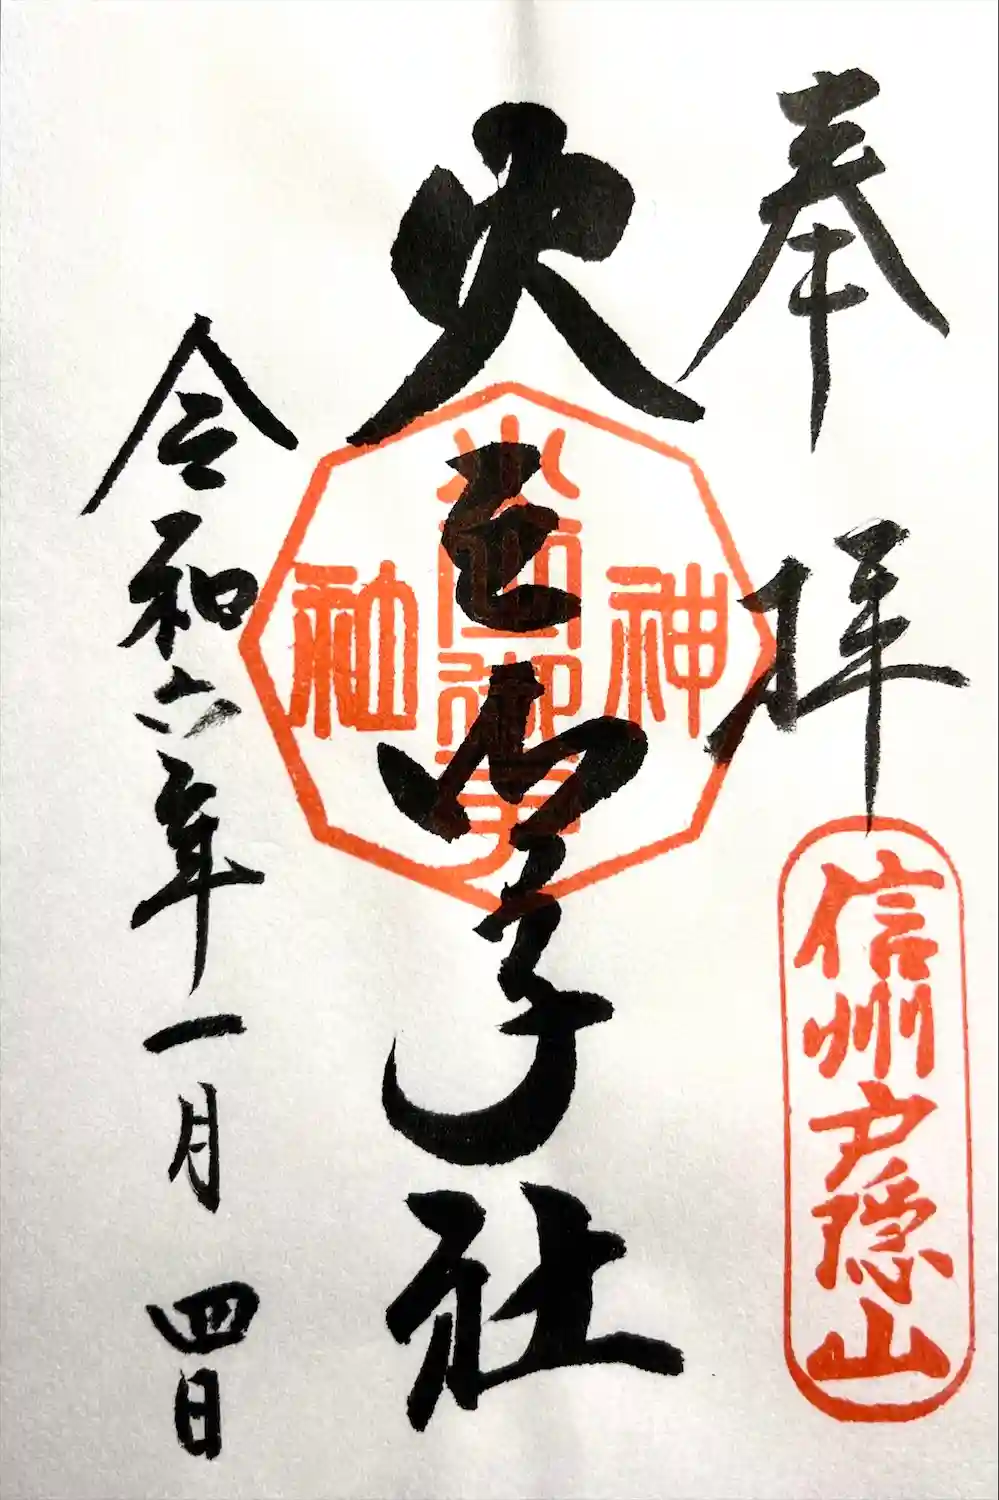 奉拝
信州戸隠山
火之御子社
神
火之御子
社
令和六年一月四日